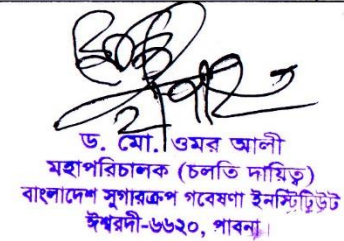 ড. মো. ওমর আলী
মহাপরিচালক (চলতি দায়িত্ব)
বাংলাদেশ সুগারক্রপ গবেষণা ইনস্টিটিউট
ঈশ্বরদী-৬৬২০, পাবনা।